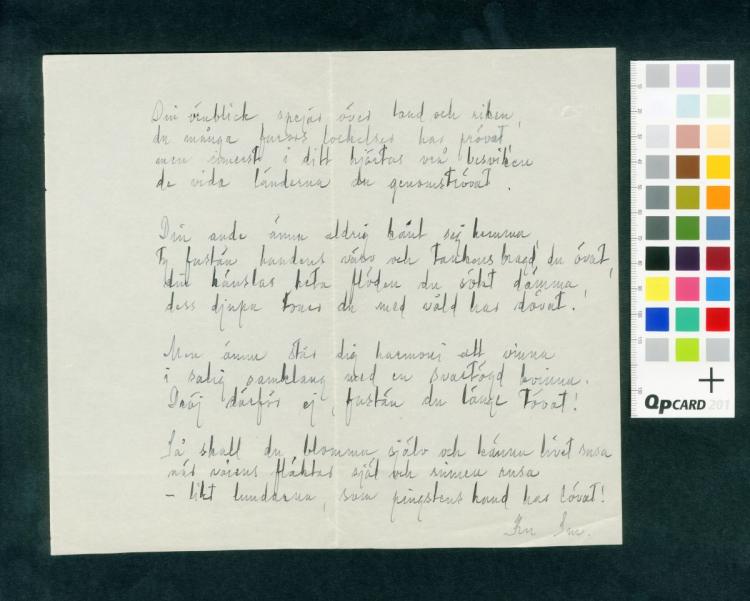 Din örnblick spejar över land och riken,
du många farors lockelser har prövat,
men innerst i ditt hjärtas vrå besviken
de vida länderna du genomströvat.
Din ande ännu aldrig känt sej hemma,
Ty fastän handens värv och tankens bragd du övat,
din känslas heta flöden du sökt dämma,
dess djupa toner du med våld har dövat!
Men ännu står dig harmoni att vinna
i salig samklang med en svartögd kvinna.
Dröj därför ej, fastän du länge tövat!
Så skall du blomma själv och känna livet susa
när vårens fläktar själ och sinnen rusa
– likt lundarna, som pingstens hand har lövat!
QPCARD 201